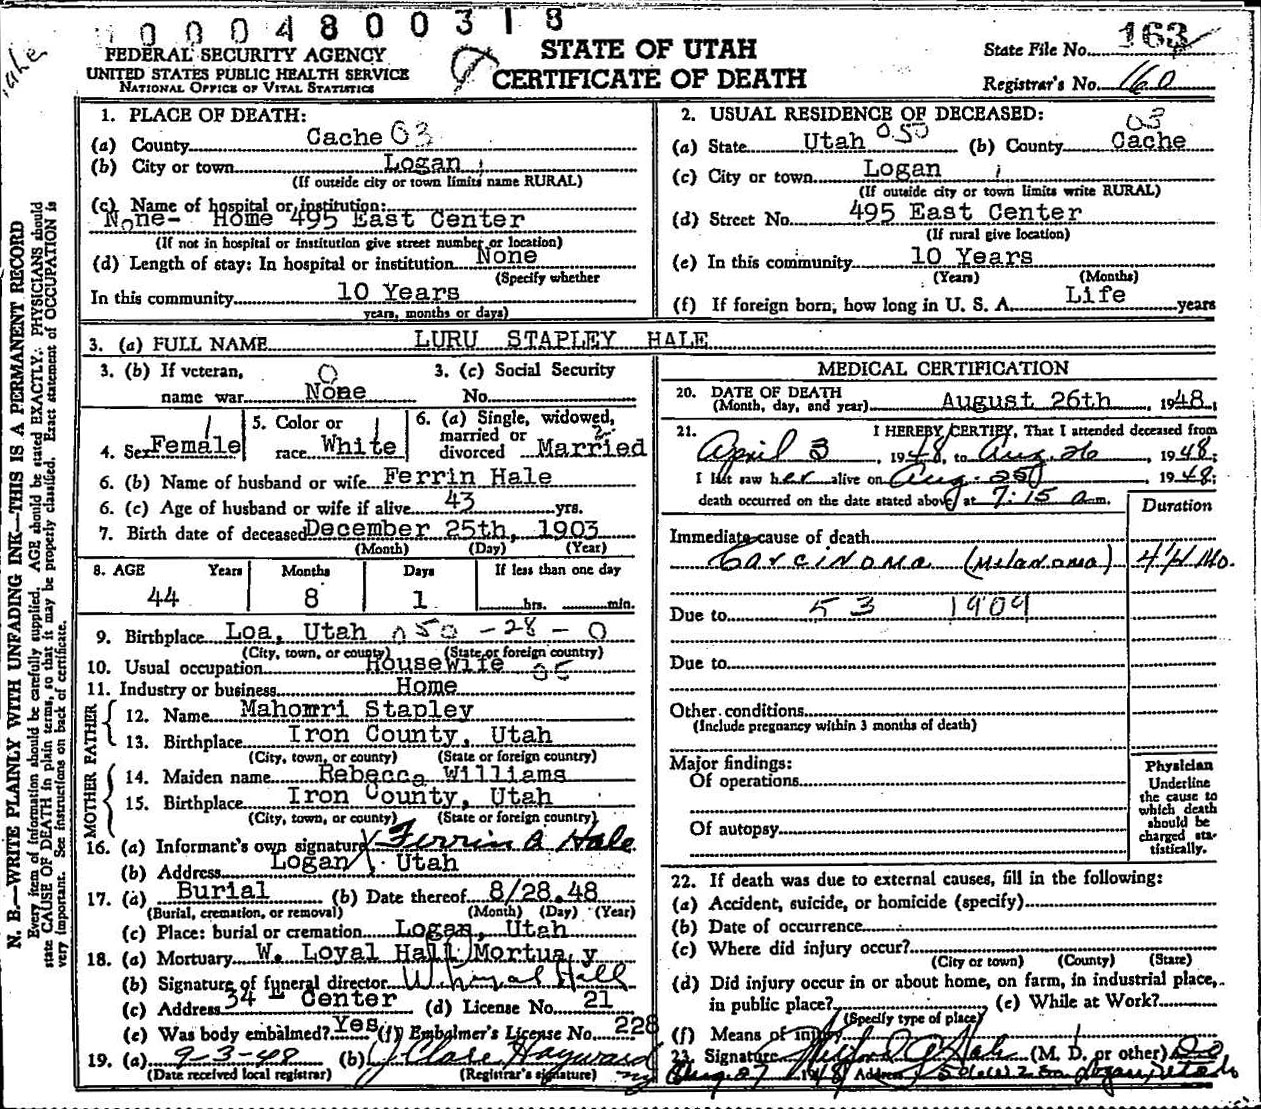 0004800318
FEDERAL SECURITY AGENCY
UNITED STATES PUBLIC HEALTH SERVICE
NATIONAL OFFICE OF VITAL STATISTICS
STATE OF UTAH
CERTIFICATE OF DEATH
State File No. 163
Registrar's No. 160
N. B.—WRITE PLAINLY WITH UNFADING INK—THIS IS A PERMANENT RECORD
Every item of information should be carefully supplied. AGE should be stated EXACTLY. PHYSICIANS should
state CAUSE OF DEATH in plain terms, so that it may be properly classified. Exact statement of OCCUPATION is
very important. See instructions on back of certificate.
1. PLACE OF DEATH:
(a) County Cache 03
(b) City or town Logan
(If outside city or town limits name RURAL)
(c) Name of hospital or institution:
None- Home 495 East Center
(If not in hospital or institution give street number or location)
(d) Length of stay: In hospital or institution None
(Specify whether
In this community 10 Years
years, months or days)
2. USUAL RESIDENCE OF DECEASED:
03
(a) State Utah 050 (b) County Cache
(c) City or town Logan
(If outside city or town limits write RURAL)
(d) Street No. 495 East Center
(If rural give location)
(e) In this community 10 Years
(Years) (Months)
(f) If foreign born, how long in U. S. A. Life years
3. (a) FULL NAME LURU STAPLEY HALE
3. (b) If veteran, 0 3. (c) Social Security
name war None No.
4. Sex Female 5. Color or race White 6. (a) Single, widowed, married or divorced Married
6. (b) Name of husband or wife Ferrin Hale
6. (c) Age of husband or wife if alive 43 yrs.
7. Birth date of deceased December 25th, 1903
(Month) (Day) (Year)
8. AGE Years Months Days If less than one day
44 8 1 hrs. min.
9. Birthplace Loa, Utah 050 -28-0
(City, town, or county) (State or foreign country)
10. Usual occupation Housewife
11. Industry or business Home
FATHER
12. Name Mahonri Stapley
13. Birthplace Iron County, Utah
(City, town, or county) (State or foreign country)
MOTHER
14. Maiden name Rebecca Williams
15. Birthplace Iron County, Utah
(City, town, or county) (State or foreign country)
16. (a) Informant's own signature X Ferrin A Hale
(b) Address Logan, Utah
17. (a) Burial (b) Date thereof 8/28.48
(Burial, cremation, or removal) (Month) (Day) (Year)
(c) Place: burial or cremation Logan, Utah
18. (a) Mortuary W. Loyal Hall Mortua y
(b) Signature of funeral director W Loyal Hall
(c) Address 34 - Center (d) License No. 21
(e) Was body embalmed? Yes (f) Embalmer's License No. 228
19. (a) 9-3-48 (b) Clare Hayward
(Date received local registrar) (Registrar's signature)
MEDICAL CERTIFICATION
20. DATE OF DEATH
(Month, day, and year) August 26th, 1948;
21. I HEREBY CERTIFY, That I attended deceased from
April 3, 1948, to Aug. 26, 1948;
I last saw her alive on Aug. 25, 1948;
death occurred on the date stated above at 7:15 a.m.
Duration
Immediate cause of death
Carcinoma (Melanoma) 4 1/2 Mo.
Due to 53 1909
Due to
Other conditions
(Include pregnancy within 3 months of death)
Major findings:
Of operations
Of autopsy
Physician
Underline
the cause to
which death
should be
charged sta-
tistically.
22. If death was due to external causes, fill in the following:
(a) Accident, suicide, or homicide (specify)
(b) Date of occurrence
(c) Where did injury occur?
(City or town) (County) (State)
(d) Did injury occur in or about home, on farm, in industrial place,
in public place? (e) While at Work?
(Specify type of place)
(f) Means of injury
23. Signature (M. D. or other)
Aug 27 1948 Address Logan, Utah